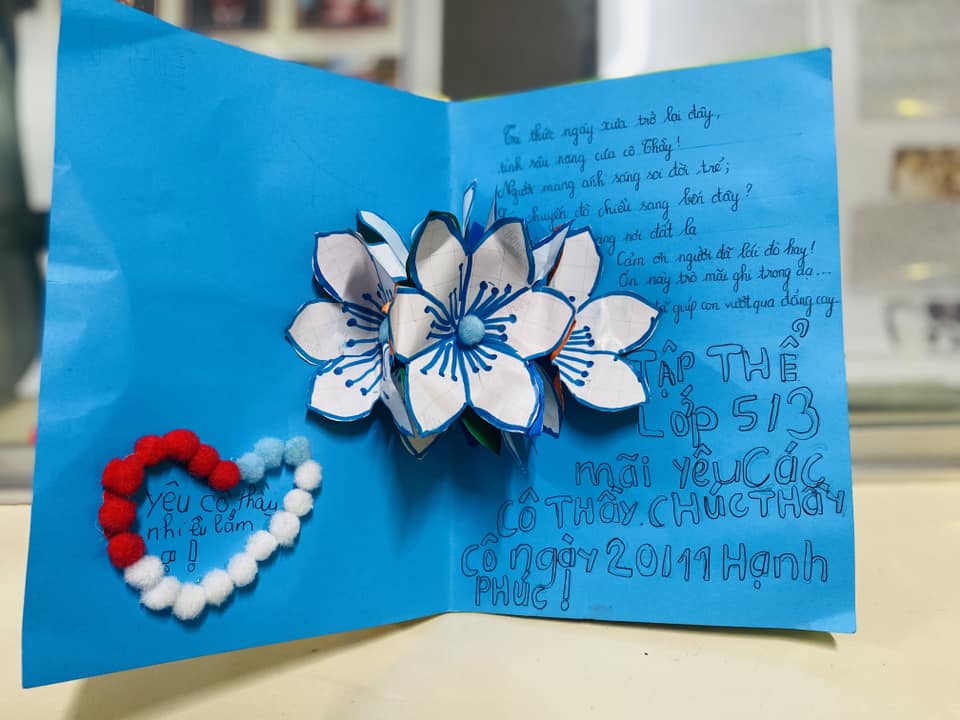 yêu cô thầy
nhiều lắm
ạ!
Tri thức ngáy xưa trở lại đây,
tình sâu nặng của cô Thầy!
Người mang ánh sáng soi đời trẻ;
chuyến đò chiều sang bến đây?
nơi đất lạ
Cảm ơn người đã lái đò hay!
Ơn này trò mãi ghi trong dạ...
giúp con vượt qua đắng cay
TẬP THỂ
LớP 5/3
mãi yêu CÁC
CÔ THẦY. CHÚC THẦY
CÔ ngày 20/11 Hạnh
PHÚC!